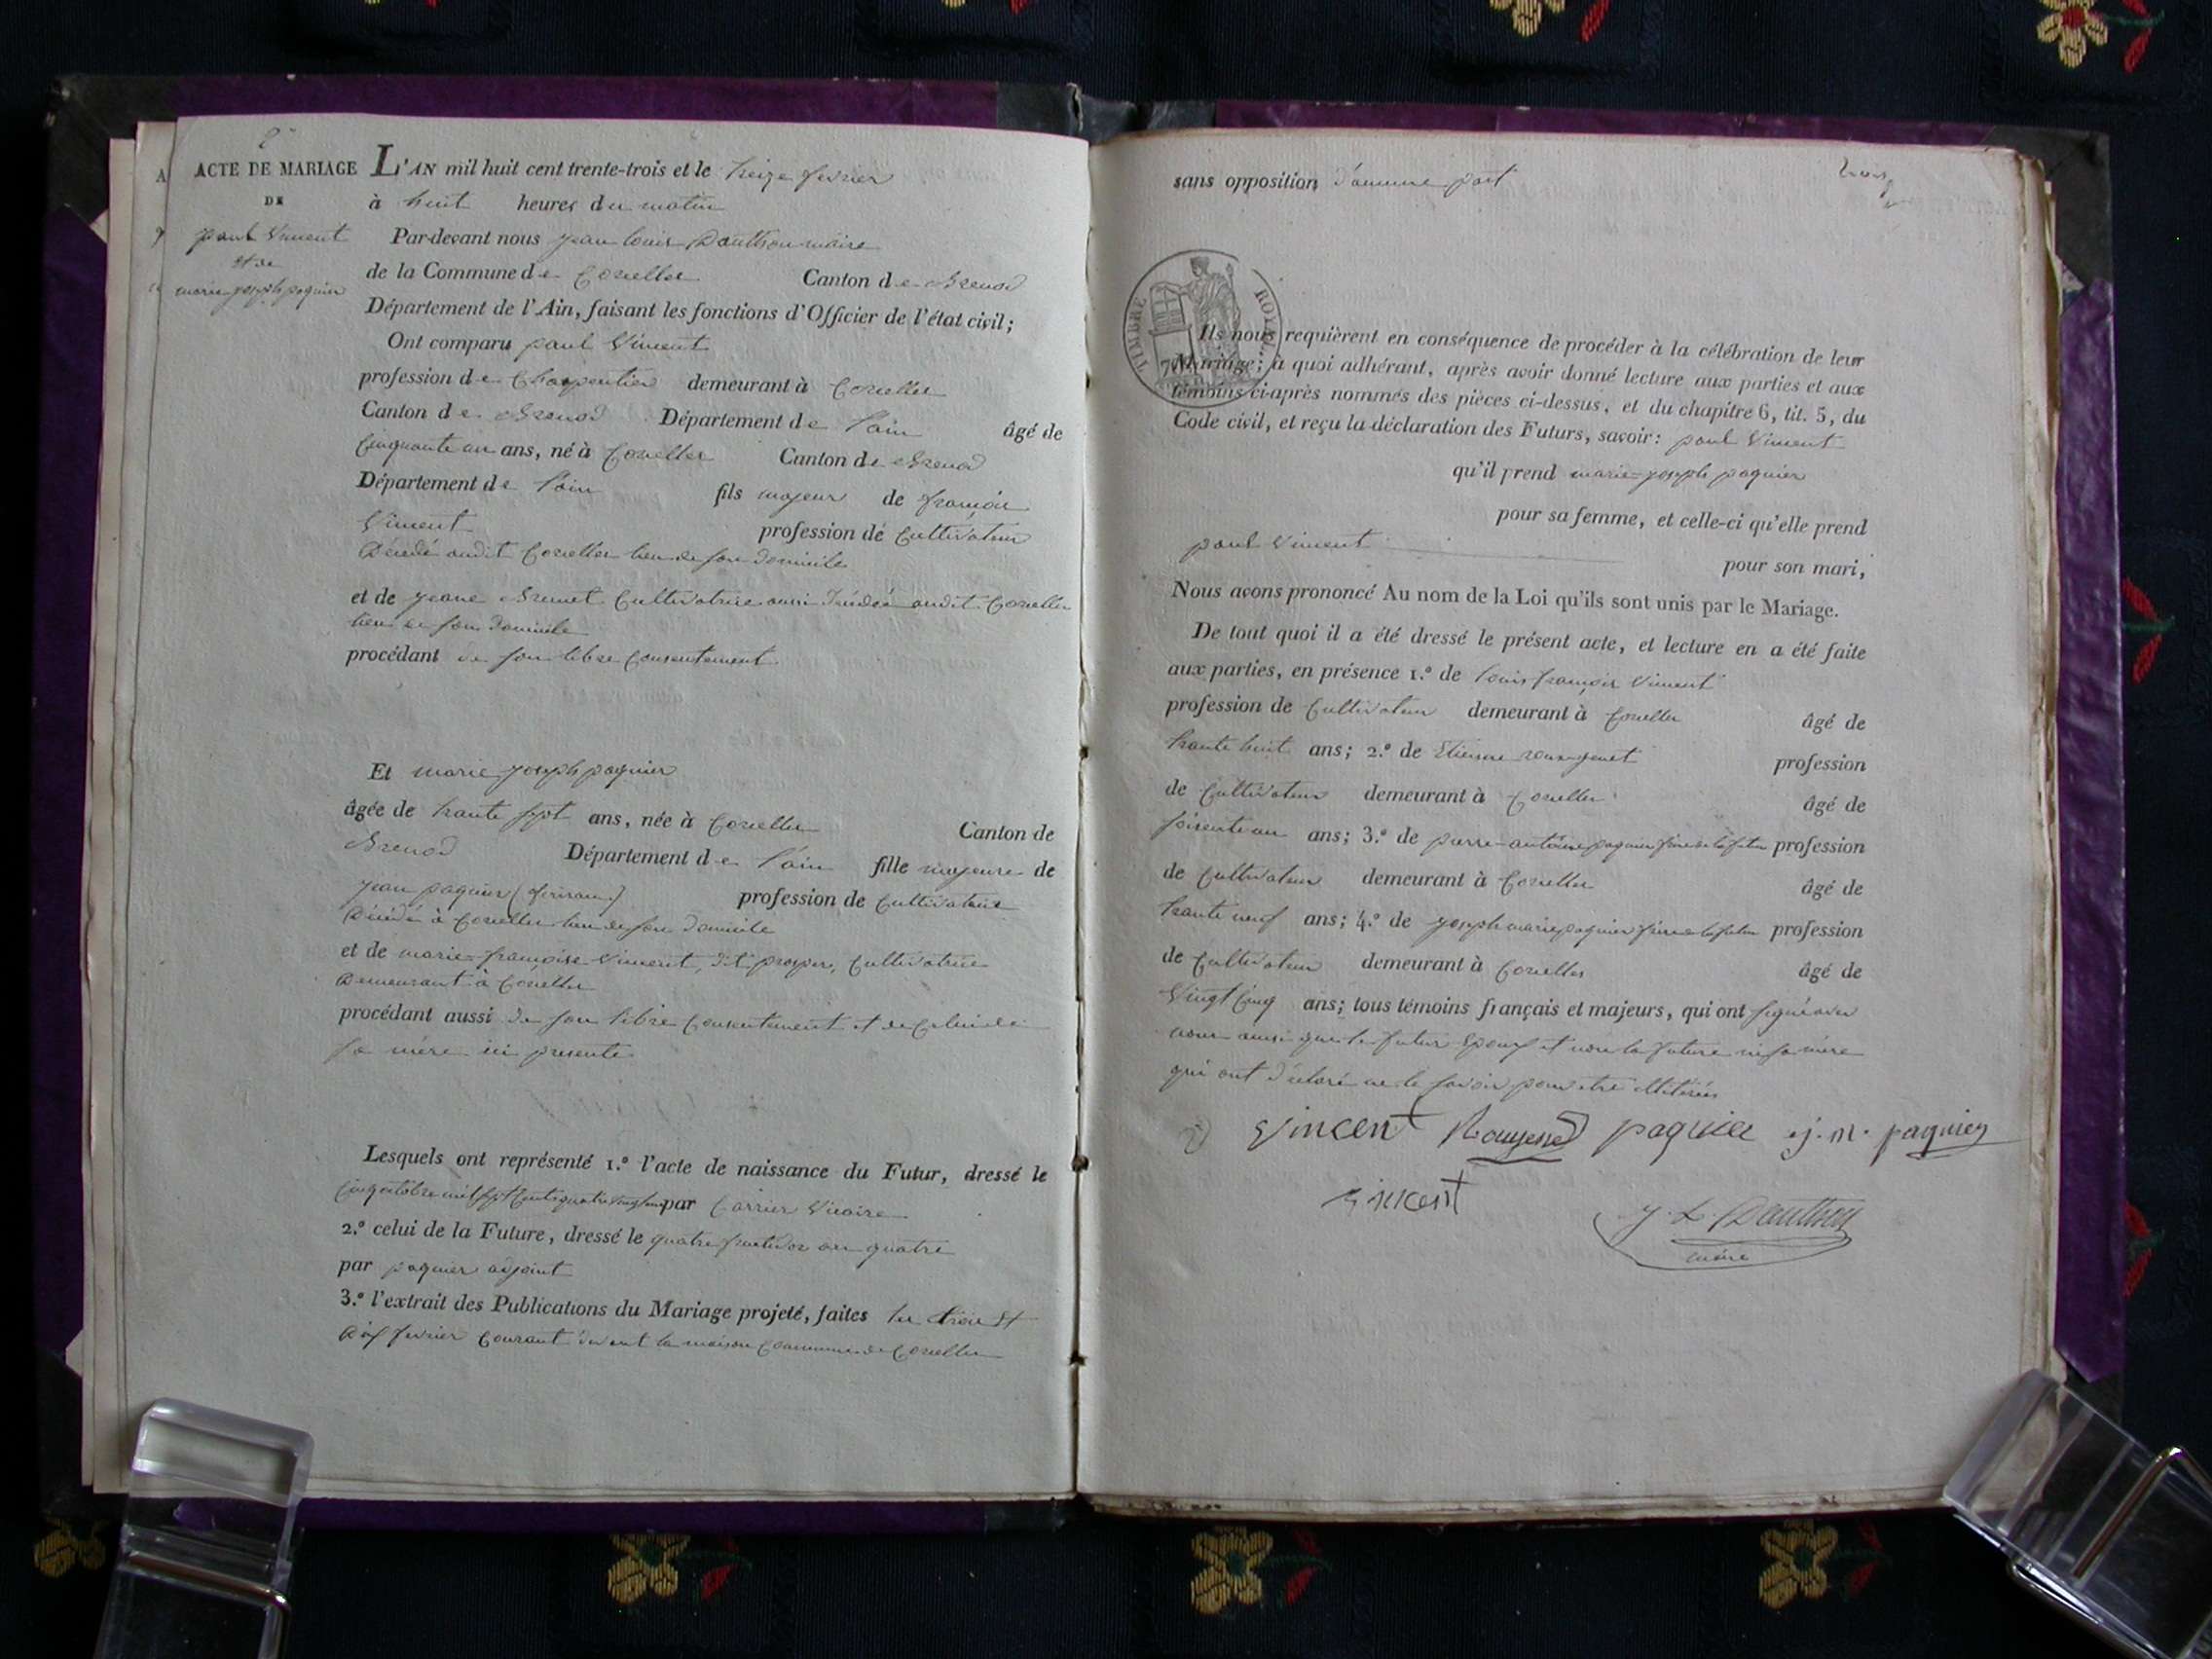 ACTE DE MARIAGE
DE
paul Vincent
et de
marie joseph paquier
L'AN mil huit cent trente-trois et le treize fevrier
à huit heures du matin
Par-devant nous jean louis Dauthon maire
de la Commune de Corcelles Canton de Brenod
Département de l'Ain, faisant les fonctions d'Officier de l'état civil;
Ont comparu paul Vincent
profession de Charpentier demeurant à Corcelles
Canton de Brenod Département de l'ain âgé de
Cinquante un ans, né à Corcelles Canton de Brenod
Département de l'ain fils majeur de françois
Vincent profession de Cultivateur
Décédé audit Corcelles lieu de son domicile
et de jeane Brunet Cultivatrice aussi décédée audit Corcelles
lieu de son domicile
procédant de son libre Consentement
Et marie joseph paquier
âgée de trante sept ans, née à Corcelles Canton de
Brenod Département de l'ain fille majeure de
jean paquier profession de Cultivateur
Décédé à Corcelles lieu de son domicile
et de marie françoise Vincent, dit prosper, Cultivatrice
Demeurant à Corcelles
procédant aussi de son libre Consentement et de Celui de
sa mère ici presente
Lesquels ont représenté 1.º l'acte de naissance du Futur, dressé le
Cinq octobre mil sept Cent quatre vingt un par Carrier Vicaire
2.º celui de la Future, dressé le quatre fructidor an quatre
par paquier adjoint
3.º l'extrait des Publications du Mariage projeté, faites les trois et
Dix fevrier Courant devant la maison Commune de Corcelles
sans opposition d'aucune part
trois
TIMBRE ROYAL
Ils nous requièrent en conséquence de procéder à la célébration de leur
Mariage; à quoi adhérant, après avoir donné lecture aux parties et aux
témoins ci-après nommés des pièces ci-dessus, et du chapitre 6, tit. 5, du
Code civil, et reçu la déclaration des Futurs, savoir: paul Vincent
qu'il prend marie-joseph paquier
pour sa femme, et celle-ci qu'elle prend
paul Vincent
pour son mari,
Nous avons prononcé Au nom de la Loi qu'ils sont unis par le Mariage.
De tout quoi il a été dressé le présent acte, et lecture en a été faite
aux parties, en présence 1.º de louis françois Vincent
profession de Cultivateur demeurant à Corcelles âgé de
trante huit ans; 2.º de Etienne roux-genet profession
de Cultivateur demeurant à Corcelles âgé de
soisente un ans; 3.º de pierre-antoine paquier frère de la futur profession
de Cultivateur demeurant à Corcelles âgé de
trante neuf ans; 4.º de joseph marie paquier frère de la futur profession
de Cultivateur demeurant à Corcelles âgé de
Vingt Cinq ans; tous témoins français et majeurs, qui ont signé avec
nous ainsi que le futur Epoux et non la future ni sa mère
qui ont déclaré ne le savoir pour être illitérées
Vincent paquier j. m. paquier
vincent J. L. Dauthon
maire